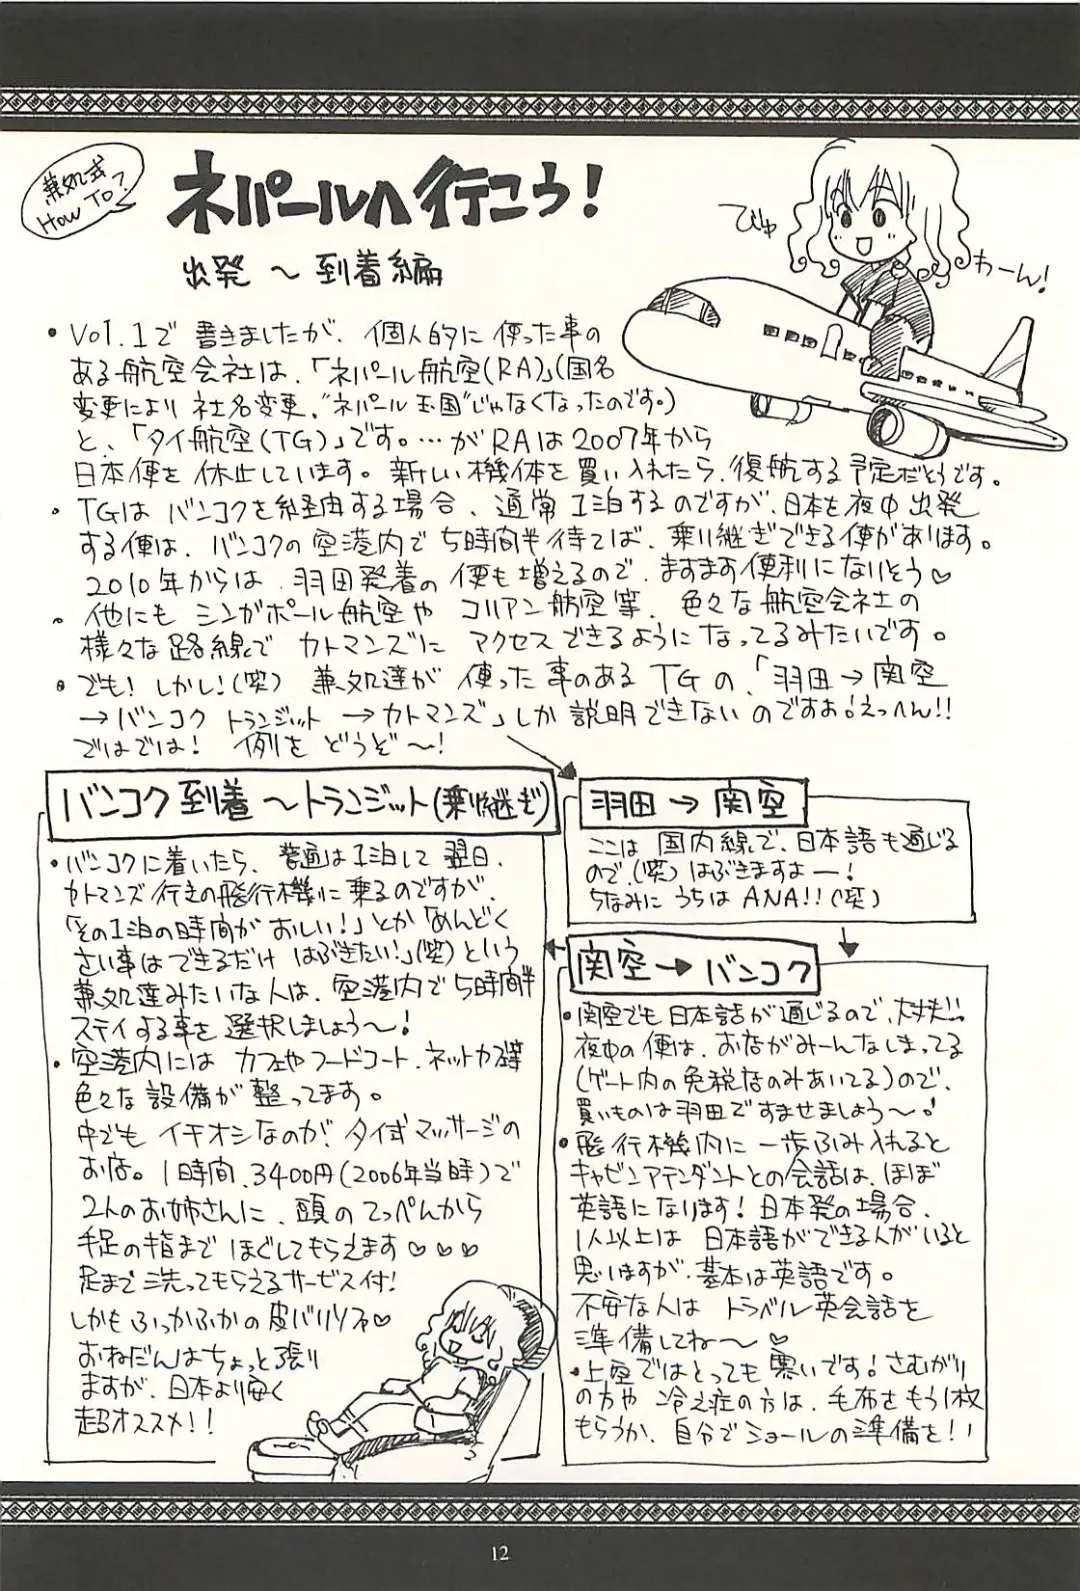 兼処式
How To?
ネパールへ行こう!
出発~到着編
びゅ
わーん!
・Vol.1で書きましたが、個人的に使った事の
ある航空会社は、「ネパール航空(RA)」(国名
変更により社名変更、"ネパール王国"じゃなくなったのです。)
と、「タイ航空(TG)」です。…がRAは2007年から
日本便を休止しています。新しい機体を買い入れたら、復航する予定だそうです。
・TGはバンコクを経由する場合、通常1泊するのですが、日本を夜中出発
する便は、バンコクの空港内で5時間半待てば、乗り継ぎできる便があります。
2010年からは、羽田発着の便も増えるので、ますます便利になりそう♡
・他にもシンガポール航空やコリアン航空等、色々な航空会社の
様々な路線でカトマンズにアクセスできるようになってるみたいです。
・でも!しかし!(笑)兼処達が使った事のあるTGの、「羽田→関空
→バンコクトランジット→カトマンズ」しか説明できないのですぉ!えっへん!!
ではでは!例をどうぞ~!
羽田→関空
ここは国内線で、日本語も通じる
ので、(笑)はぶきますよー!
ちなみにうちはANA!!(笑)
関空→バンコク
・関空でも日本語が通じるので、大丈夫!!
夜中の便は、お店がみーんなしまってる
(ゲート内の免税店のみあいてる)ので、
買いものは羽田ですませましょう~!
・飛行機内に一歩ふみ入れると
キャビンアテンダントとの会話は、ほぼ
英語になります!日本発の場合、
1人以上は日本語ができる人がいると
思いますが、基本は英語です。
不安な人はトラベル英会話を
準備してね~♡
・上空ではとっても寒いです!さむがり
の方や冷え症の方は、毛布をもう1枚
もらうか、自分でショールの準備を!!
バンコク到着~トランジット(乗り継ぎ)
・バンコクに着いたら、普通は1泊して翌日、
カトマンズ行きの飛行機に乗るのですが、
「その1泊の時間がおしい!」とか「めんどく
さい事はできるだけはぶきたい!」(笑)という
兼処達みたいな人は、空港内で5時間半
ステイする事を選択しましょう~!
・空港内にはカフェやフードコート、ネットカフェ等
色々な設備が整ってます。
中でもイチオシなのが、タイ式マッサージの
お店。1時間、3400円(2006年当時)で
2人のお姉さんに、頭のてっぺんから
手足の指までほぐしてもらえます♡♡♡
足まで洗ってもらえるサービス付!
しかもふっかふかの皮バリソファ♡
おねだんはちょっと張り
ますが、日本より安く
超オススメ!!
12